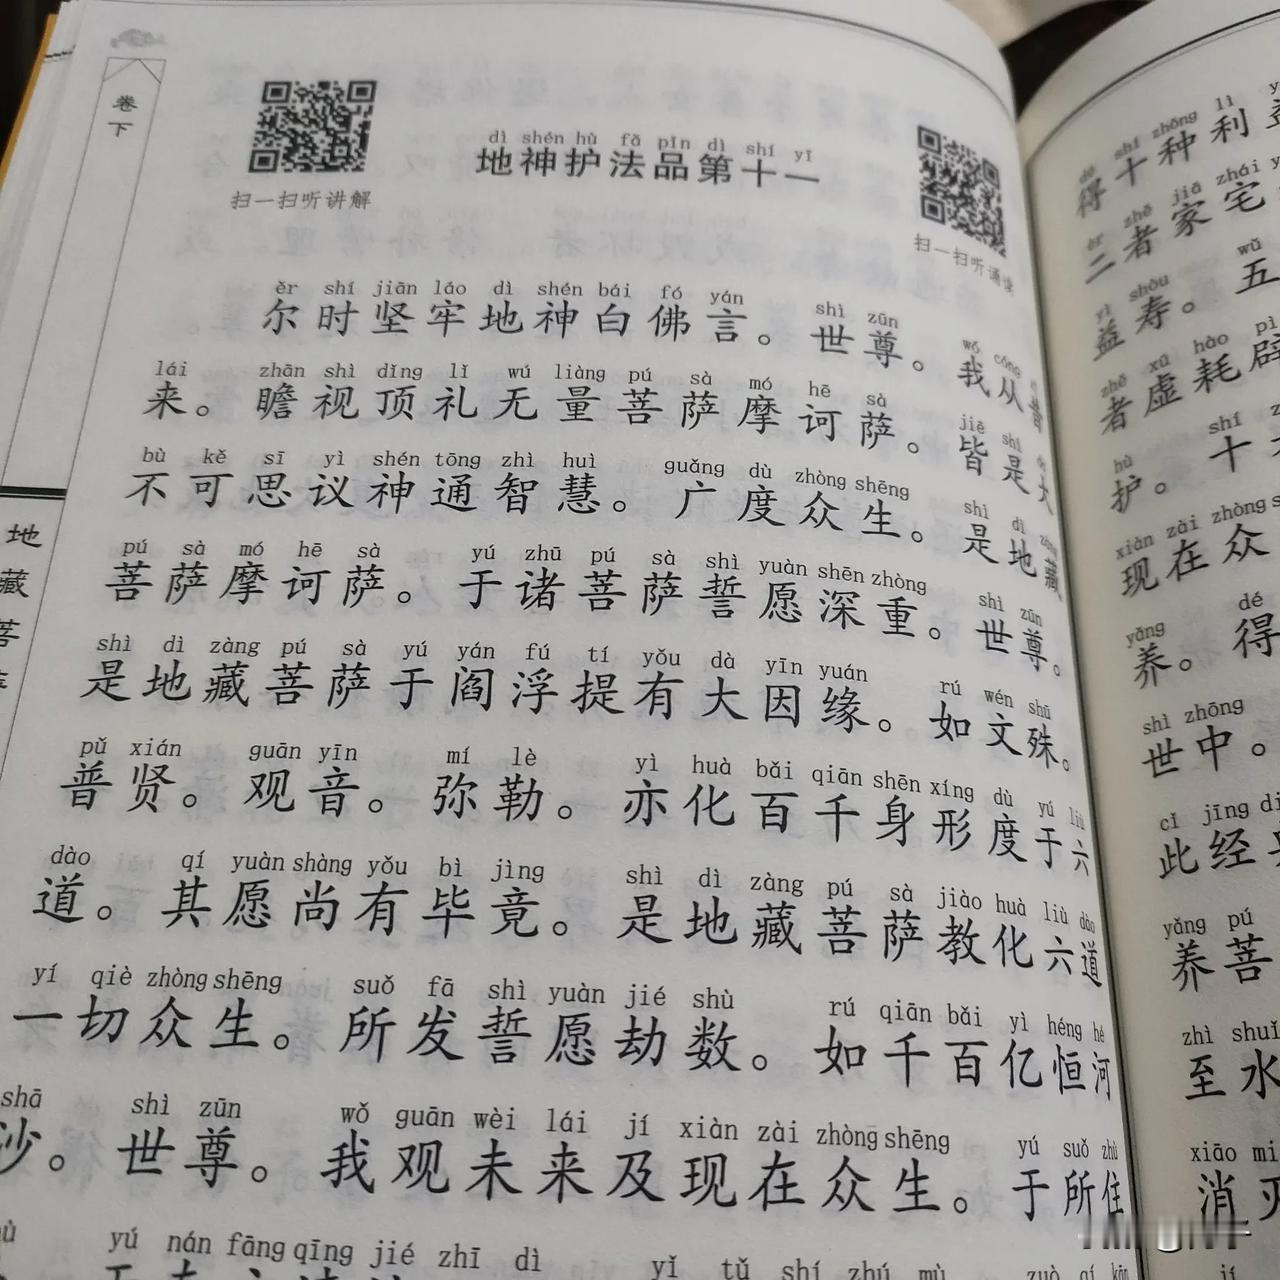 卷下
地藏菩
扫一扫听讲解
dì shén hù fǎ pǐn dì shí yī
地神护法品第十一
扫一扫听诵读
ěr shí jiān láo dì shén bái fó yán shì zūn wǒ cóng
尔时坚牢地神白佛言。世尊。我从昔
lái zhān shì dǐng lǐ wú liàng pú sà mó hē sà jiē shì
来。瞻视顶礼无量菩萨摩诃萨。皆是大
bù kě sī yì shén tōng zhì huì guǎng dù zhòng shēng shì dì zàng
不可思议神通智慧。广度众生。是地藏
pú sà mó hē sà yú zhū pú sà shì yuàn shēn zhòng shì zūn
菩萨摩诃萨。于诸菩萨誓愿深重。世尊。
shì dì zàng pú sà yú yán fú tí yǒu dà yīn yuán rú wén shū
是地藏菩萨于阎浮提有大因缘。如文殊。
pǔ xián guān yīn mí lè yì huà bǎi qiān shēn xíng dù yú liù
普贤。观音。弥勒。亦化百千身形度于六
dào qí yuàn shàng yǒu bì jìng shì dì zàng pú sà jiào huà liù dào
道。其愿尚有毕竟。是地藏菩萨教化六道
yí qiè zhòng shēng suǒ fā shì yuàn jié shù rú qiān bǎi yì héng hé
一切众生。所发誓愿劫数。如千百亿恒河
shā shì zūn wǒ guān wèi lái jí xiàn zài zhòng shēng yú suǒ zhù
沙。世尊。我观未来及现在众生。于所住
yú nán fāng qīng jié zhī dì yǐ tǔ shí zhú mù zuò qí kān
dé shí zhǒng lì
得十种利
èr zhě jiā zhái
二者家宅
yì shòu wǔ
益寿。五
zhě xū hào pì
者虚耗辟
hù shí
护。十
xiàn zài zhòng
现在众
yǎng dé
养。得
shì zhōng
世中。
cǐ jīng
此经
yǎng pú
养菩
zhì shuǐ
至水
xiāo
消灭